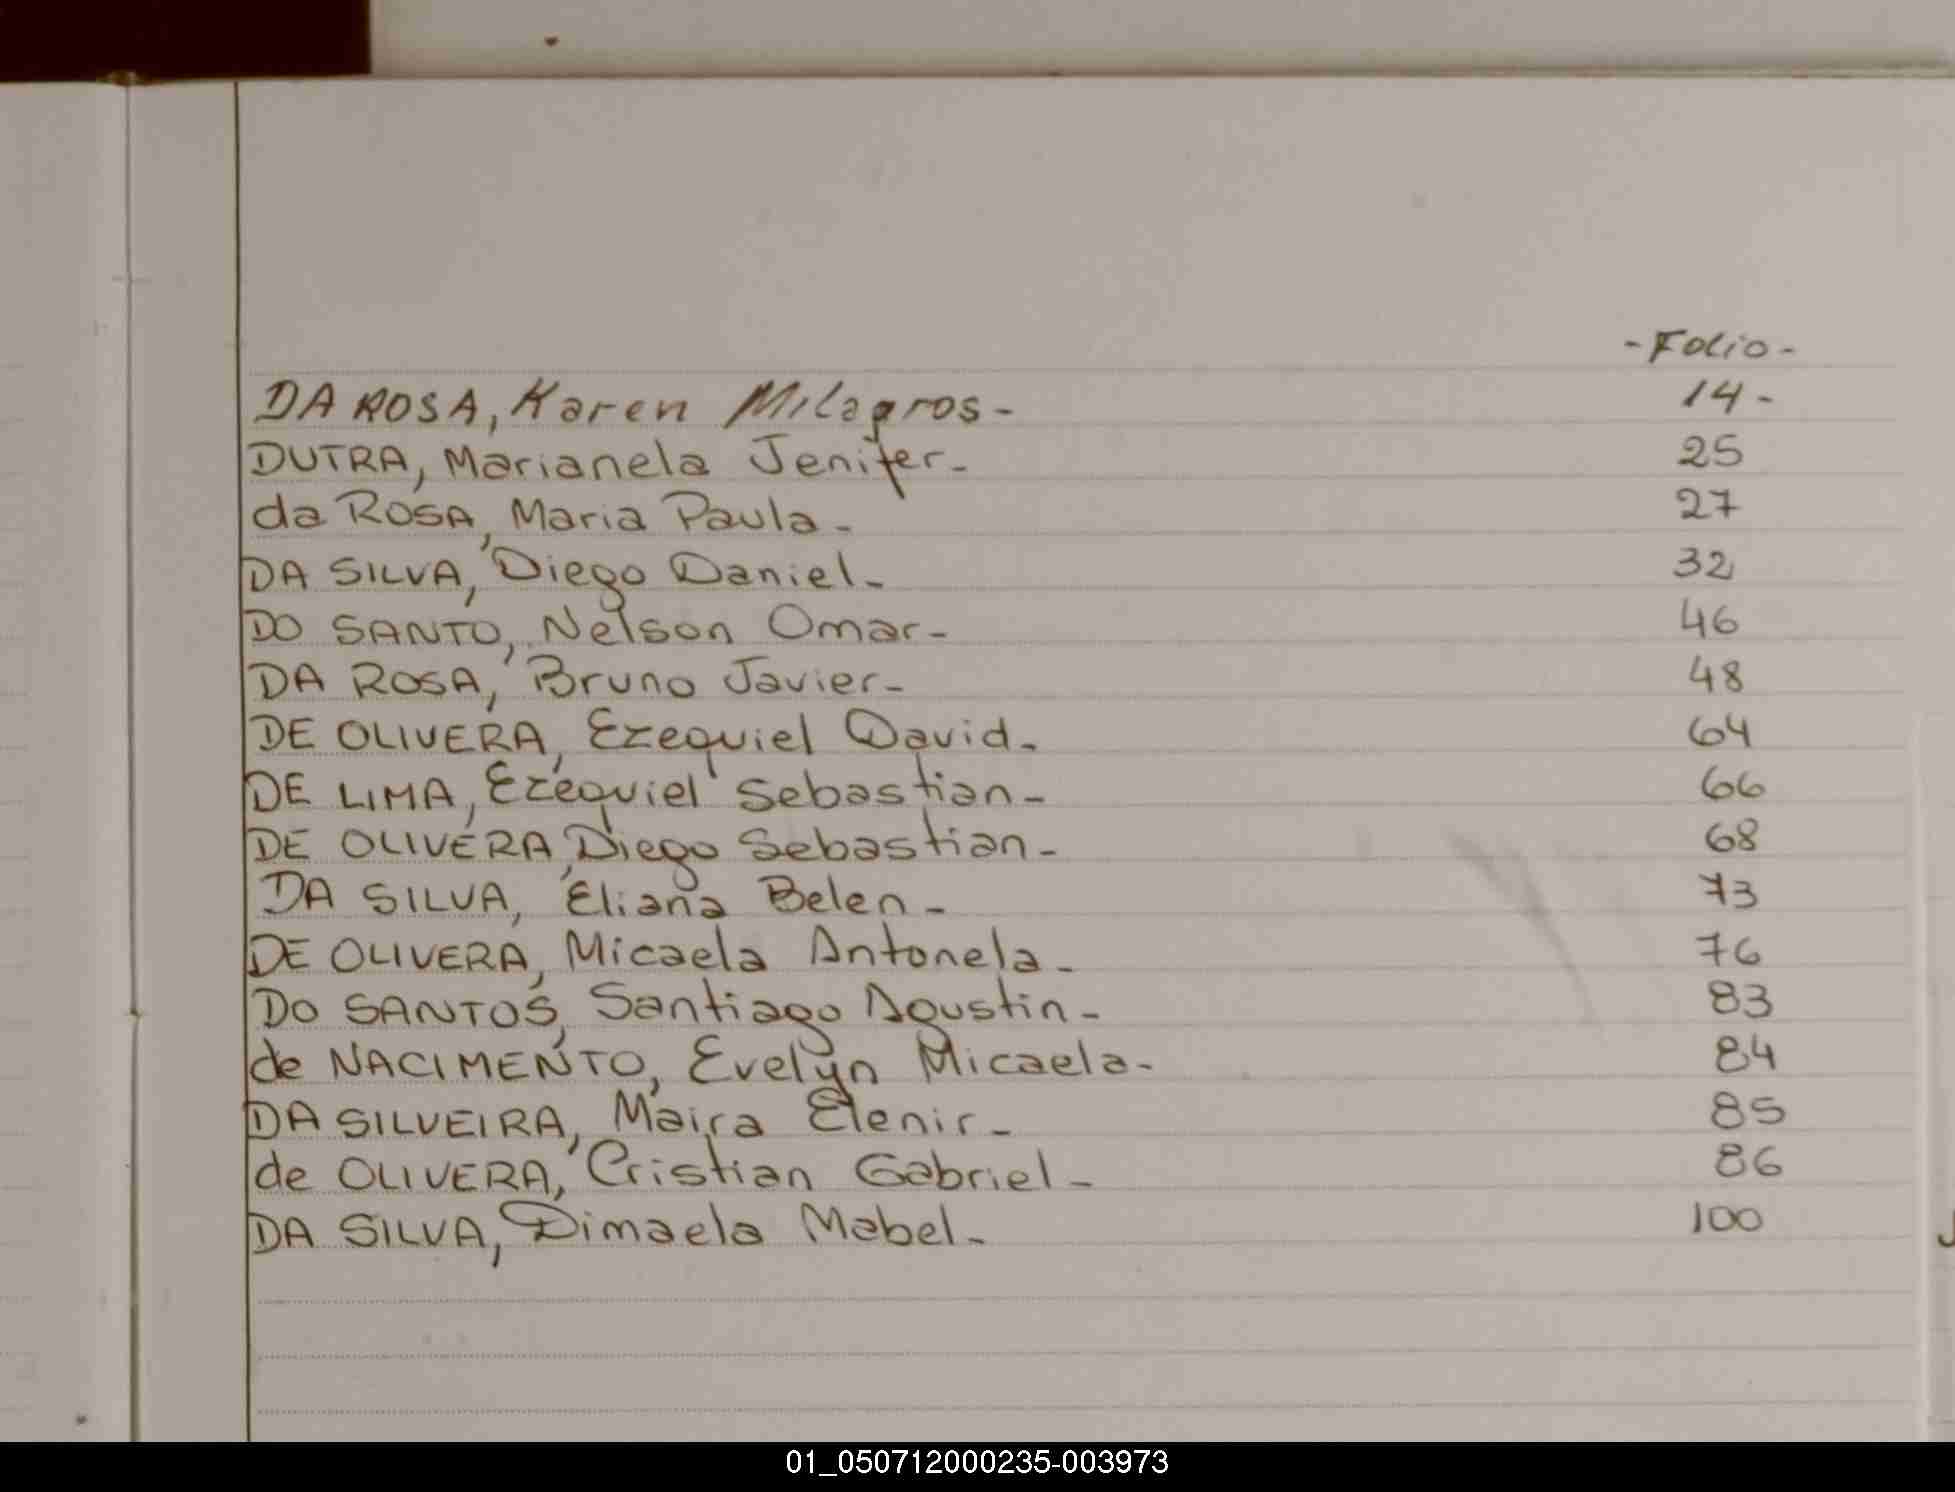 -Folio-
DA ROSA, Karen Milagros- 14-
DUTRA, Marianela Jenifer- 25
da ROSA, Maria Paula- 27
DA SILVA, Diego Daniel- 32
DO SANTO, Nelson Omar- 46
DA ROSA, Bruno Javier- 48
DE OLIVERA, Ezequiel David- 64
DE LIMA, Ezequiel Sebastian- 66
DE OLIVERA, Diego Sebastian- 68
DA SILVA, Eliana Belen- 73
DE OLIVERA, Micaela Antonela- 76
DO SANTOS, Santiago Agustin- 83
de NACIMENTO, Evelyn Micaela- 84
DA SILVEIRA, Maira Elenir- 85
de OLIVERA, Cristian Gabriel- 86
DA SILVA, Dimaela Mabel- 100
01_050712000235-003973